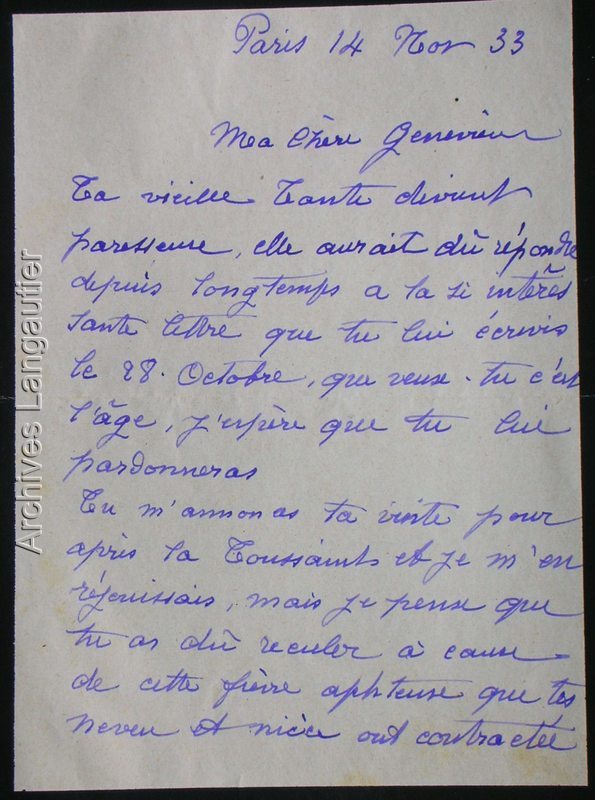 Paris 14 Nov 33
Ma chère Geneviève
Ta vieille Tante devient
paresseuse, elle aurait dû répondre
depuis longtemps a la si intéres
sante lettre que tu lui écrivis
le 28. Octobre, que veux-tu c'est
l'âge, j'espère que tu lui
pardonneras
Tu m'annonças ta visite pour
après la Toussaint et je m'en
réjouissais, mais je pense que
tu as dû reculer à cause
de cette fièvre aphteuse que tes
neveu et nièce ont contractée
Archives Langautier